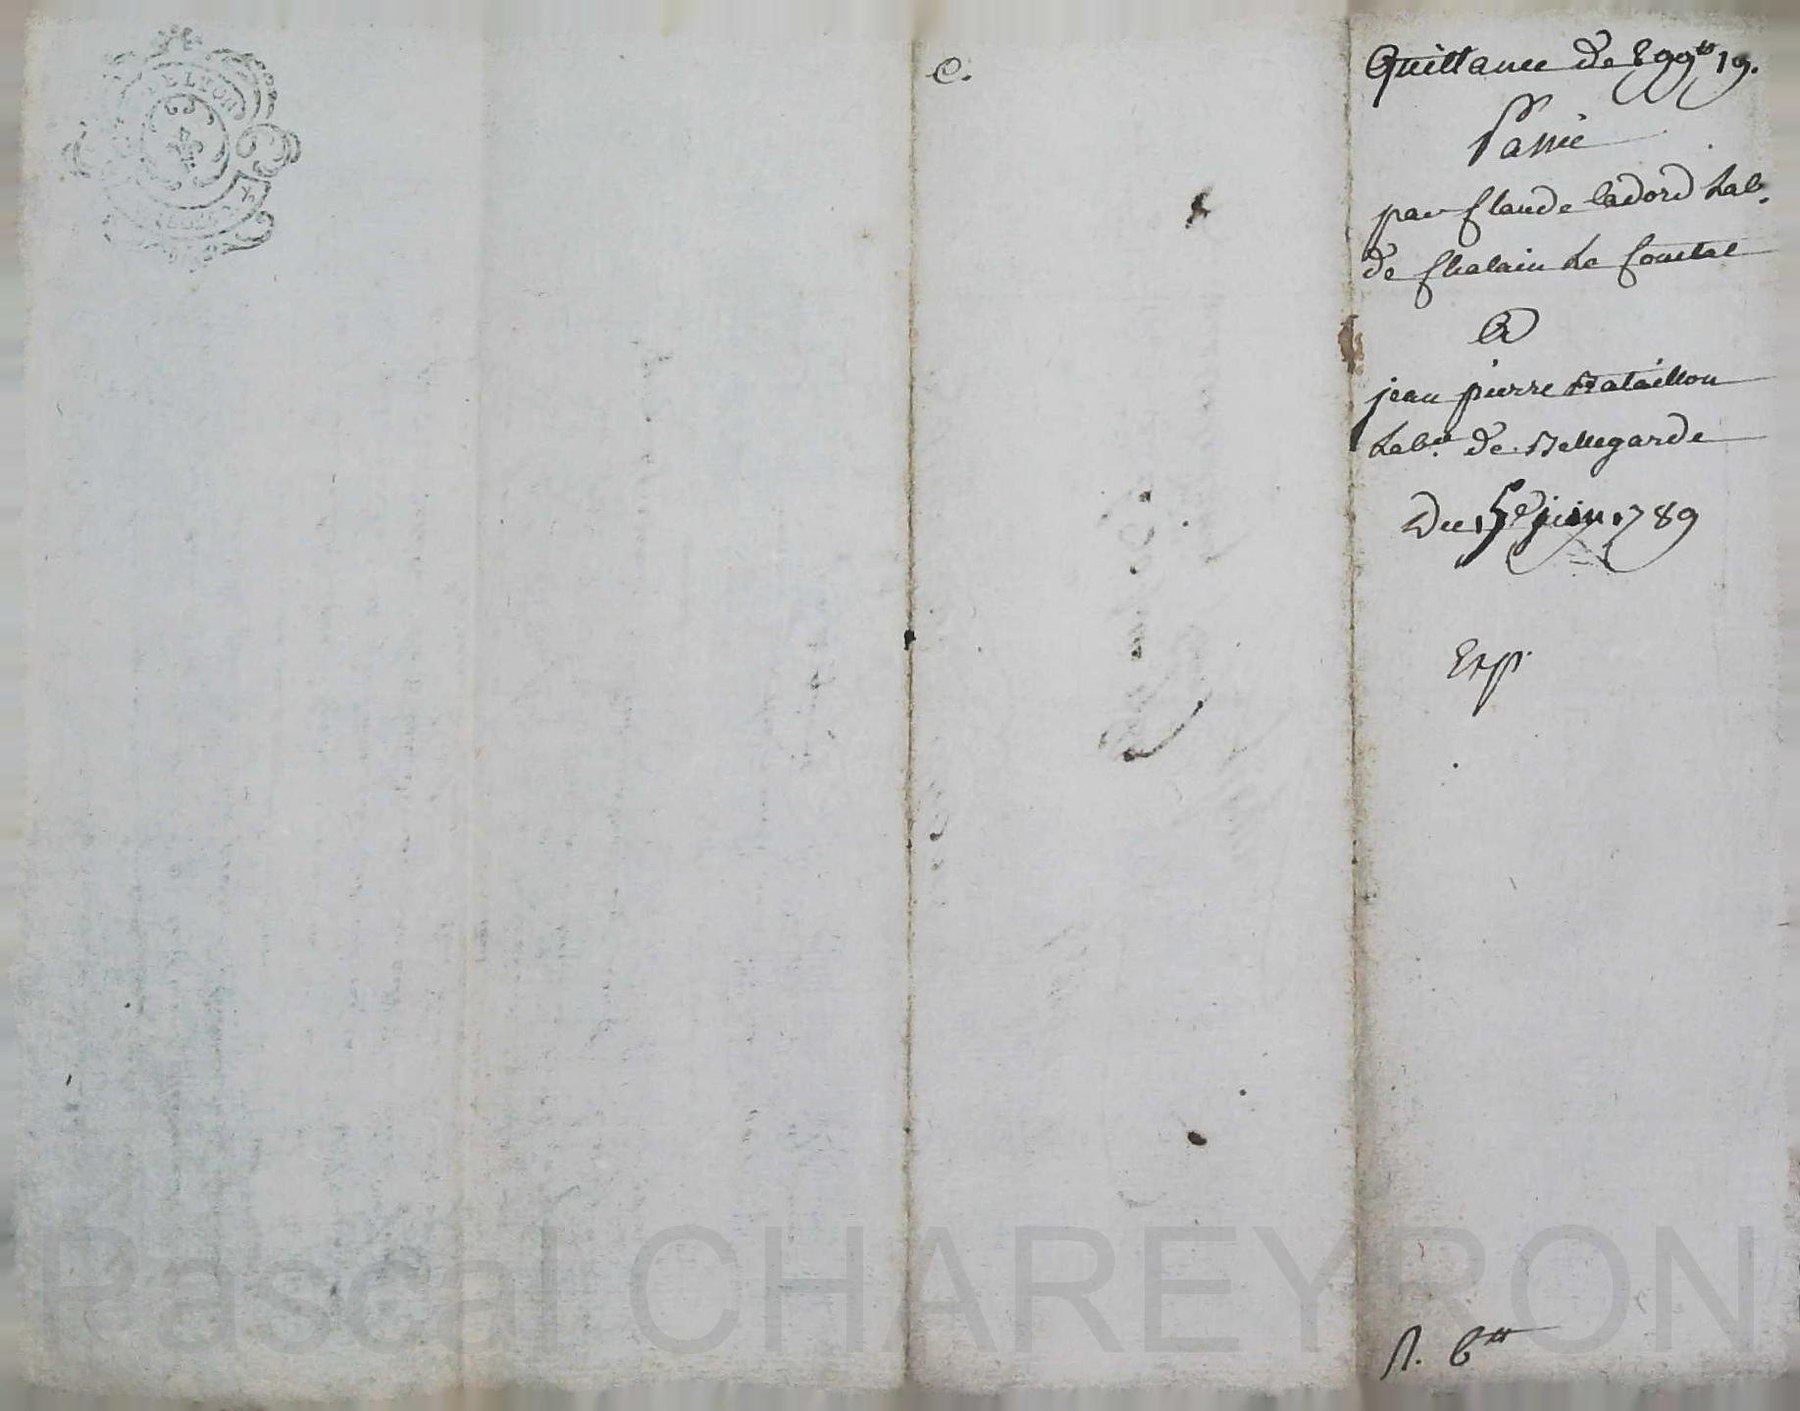 e.
Quittance de 899tt 19.
Passé
par Claude Cadord Lab.
de Chalain Le Comtal
A
jean pierre Bataillon
Labr. de Bellegarde
Du 5e juin 1789
Exp.
Pascal CHAREYRON